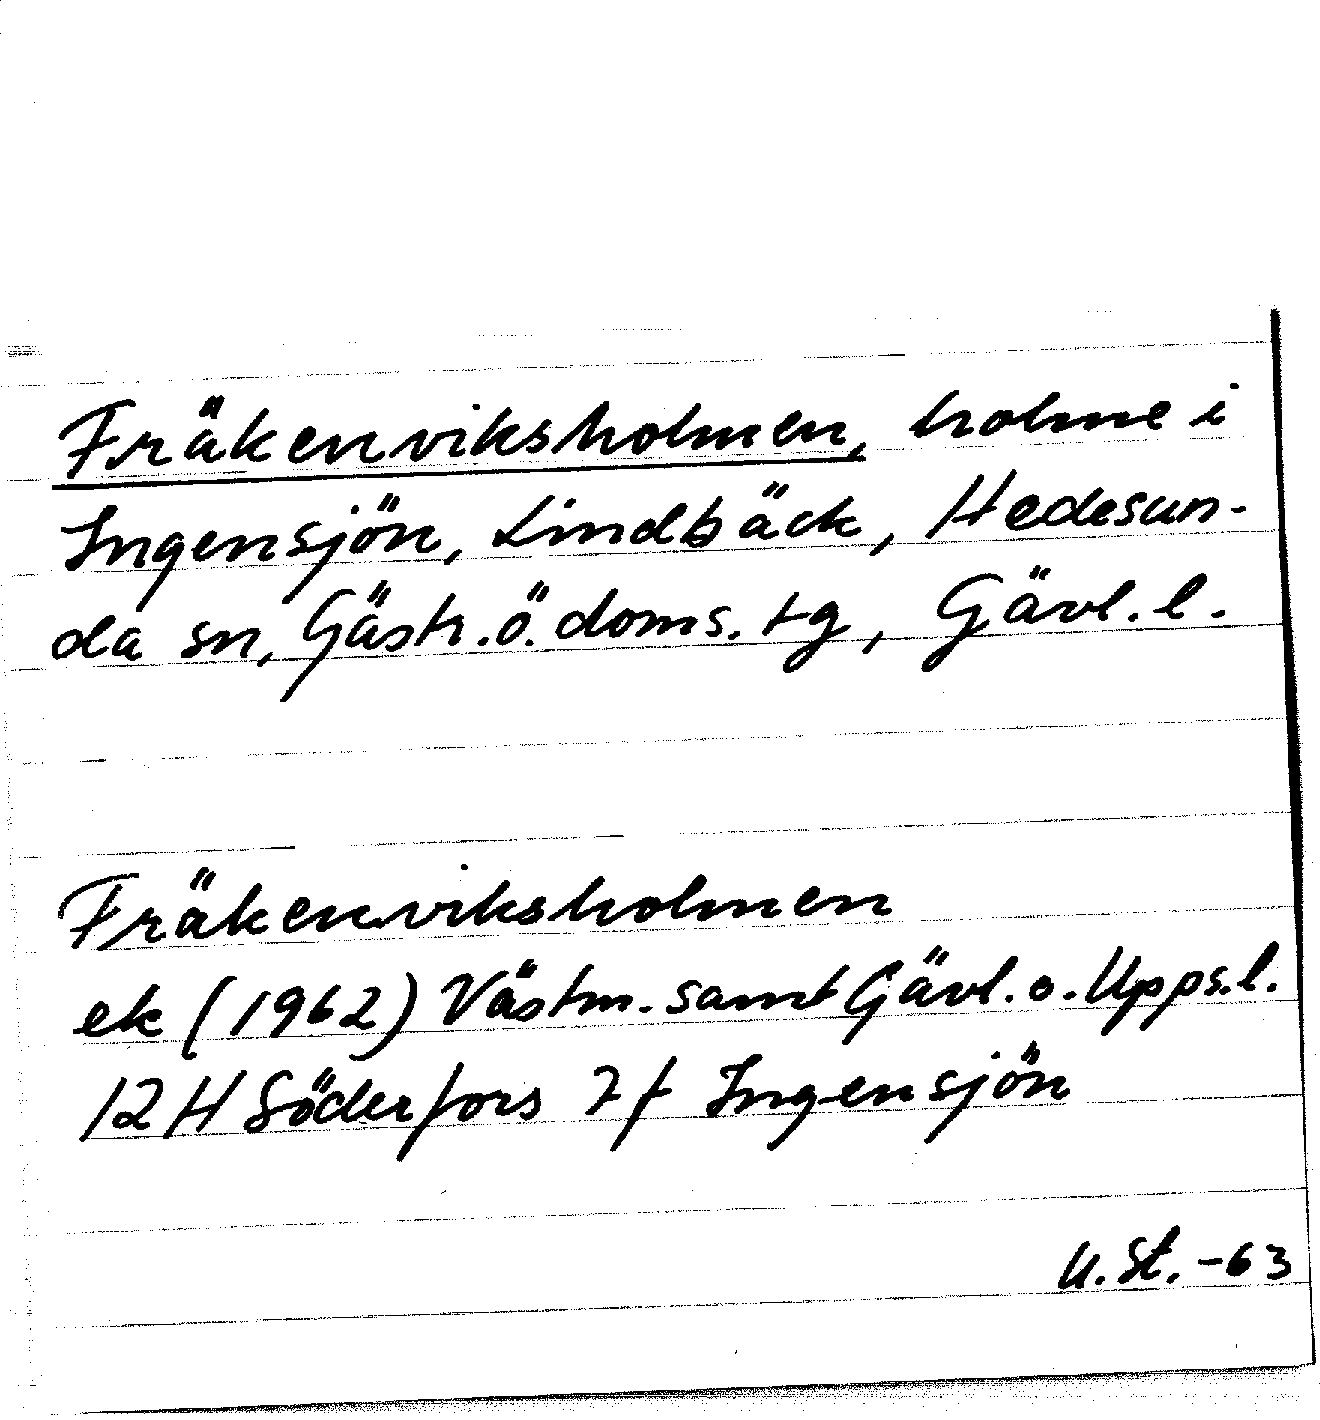 Fräkenviksholmen, holme i
Ingensjön, Lindbäck, Hedesun-
da sn, Gästr. ö. doms. tg, Gävl. l.
Fräkenviksholmen
ek (1962) Västm. samt Gävl. o. Upps. l.
12H Söderfors 7f Ingensjön
U. St. -63